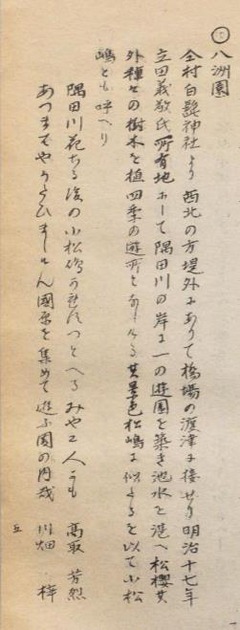 八洲園
仝村白髭神社より西北の方堤外にありて橋場の渡津に接せり明治十七年
立田義敬氏所有地にして隅田川の岸に一の遊園を築き池水を湛へ松櫻其
外種々の樹木を植四季の遊所となしける其景色松嶋に似よるを以て小松
嶋とも呼へり
隅田川花ちる後の小松嶋 つとへる みや人 高取 芳烈
あつま 國 を集めて遊ふ園の内哉 川畑 梓
五